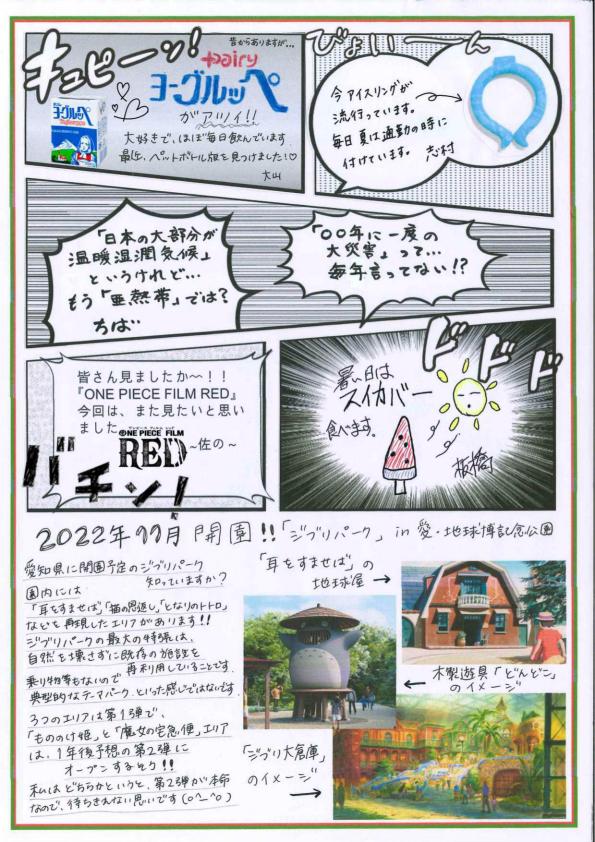 キュピーン！
昔からありますが…
Dairy
ヨーグルッペ
がアツイ!!
大好きで、ほぼ毎日飲んでいます
最近、ペットボトル版を見つけました！♡
大山
びよいーん
今アイスリングが
流行っています。
毎日夏は通勤の時に
付けています。 志村
「日本の大部分が
温暖湿潤気候」
というけれど…
もう「亜熱帯」では？
ちば
「〇〇年に一度の
大災害」って…
毎年言ってない!?
皆さん見ましたか～！！
『ONE PIECE FILM RED』
今回は、また見たいと思い
ました
ONE PIECE FILM
RED
~佐の~
バチン!
ドドド
暑い日は
スイカバー
食べます。
板橋
2022年11月 開園!!「ジブリパーク」 in 愛・地球博記念公園
愛知県に開園予定のジブリパーク
知っていますか？
園内には
「耳をすませば」「猫の恩返し」「となりのトトロ」
などを再現したエリアがあります!!
ジブリパークの最大の特張は、
自然を壊さずに既存の施設を
再利用していることです
乗り物等もないので
典型的なテーマパークといった感じではないです
3つのエリアは第1弾で、
「もののけ姫」と「魔女の宅急便」エリア
は、1年後予想の第2弾に
オープンするそう!!
私はどちらかというと、第2弾が本命
なので、待ちきれない思いです(o^_^o)
「耳をすませば」の
地球屋 →
← 木製遊具「どんどこ」
のイメージ
「ジブリ大倉庫」
のイメージ →